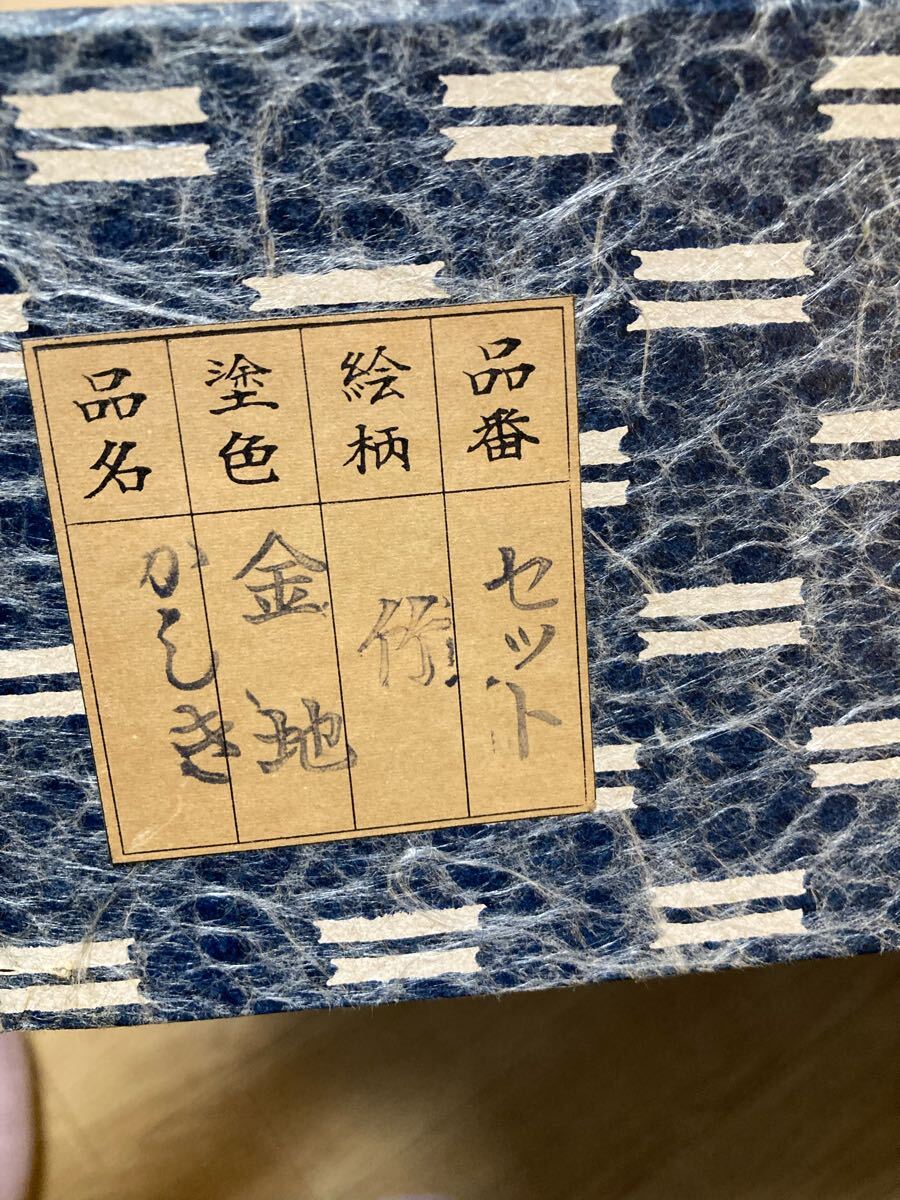 品番
セット
絵柄
塗色
金地
品名
かしき